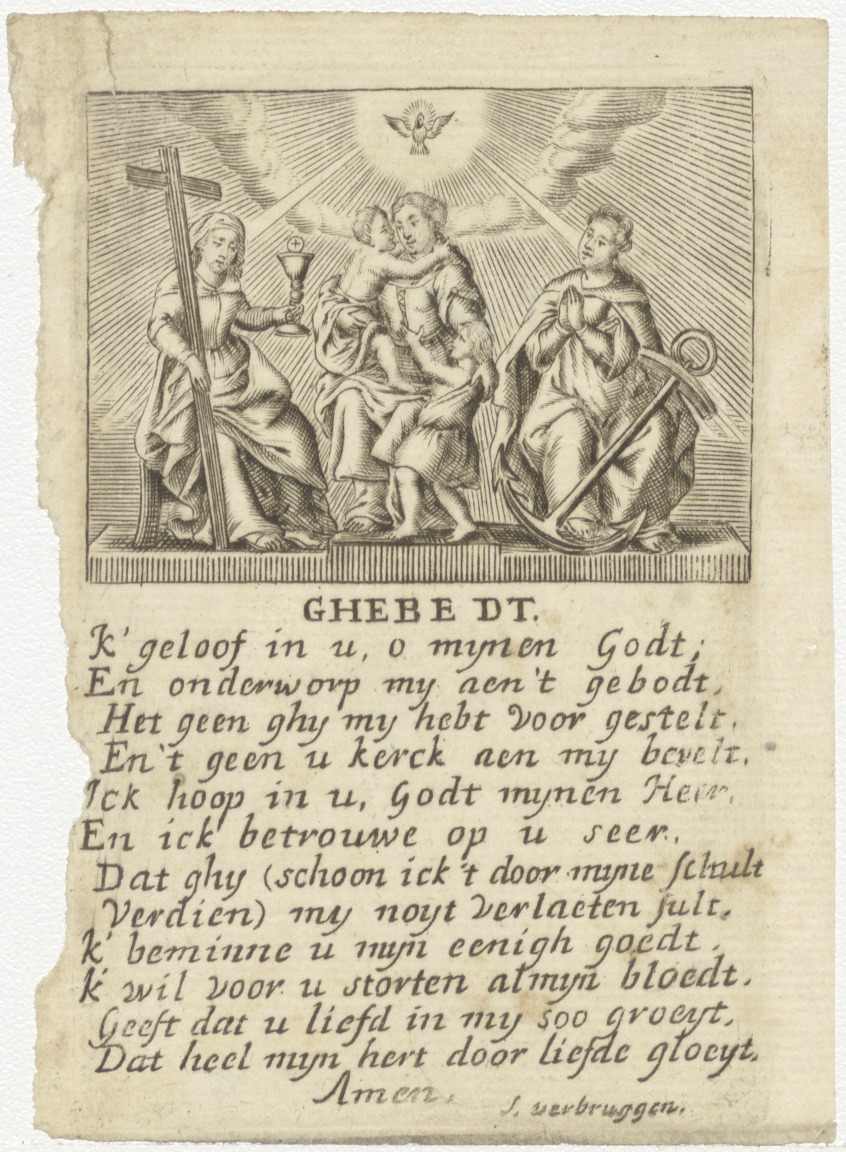 GHEBEDT.
K' geloof in u, o mynen Godt;
En onderworp my aen't gebodt,
Het geen ghy my hebt voor gestelt.
En't geen u kerck aen my bevelt.
Ick hoop in u, Godt mynen Heer,
En ick betrouwe op u seer.
Dat ghy (schoon ick't door myne schult
Verdien) my noyt verlaeten sult.
K' beminne u myn eenigh goedt.
K' wil voor u storten al myn bloedt.
Geeft dat u liefd in my soo groeyt,
Dat heel myn hert door liefde gloeyt.
Amen.
J. verbruggen.